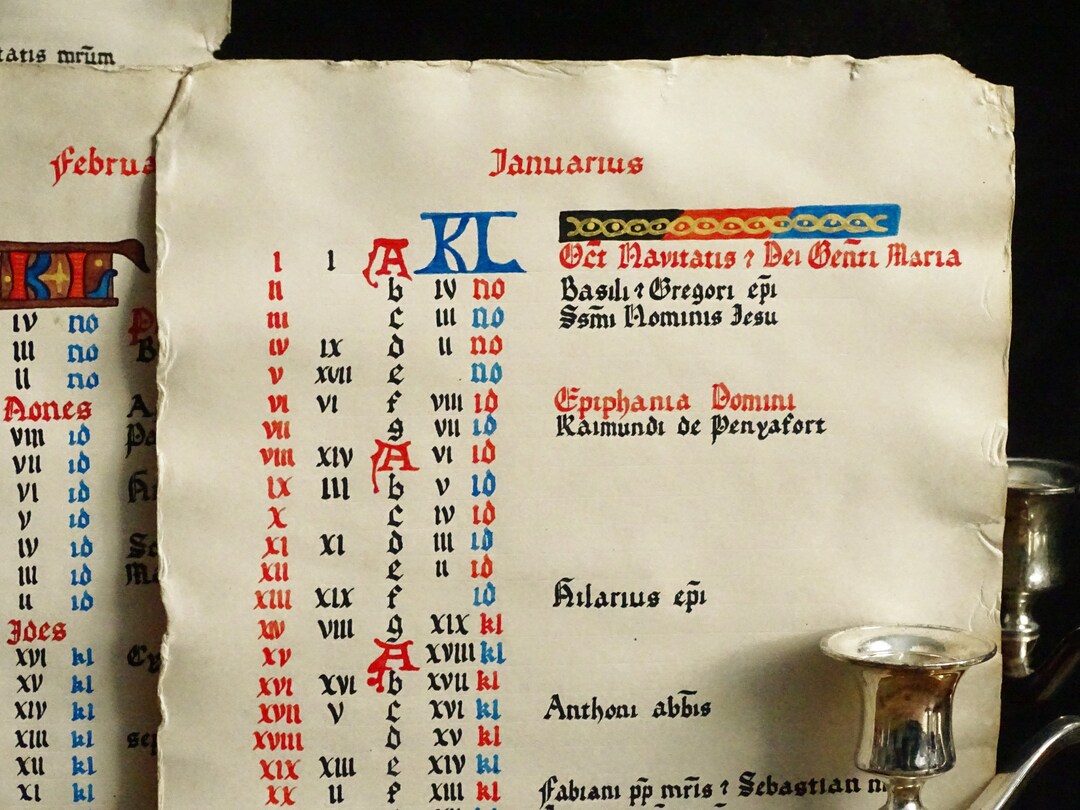 tatis mr̄m
Februa
KL
IV no
III no
II no
Nones
VIII id
VII id
VI id
V id
IV id
III id
II id
Ides
XVI kl
XV kl
XIV kl
XIII kl
XII kl
XI kl
Januarius
I I A KL Oct̄ Navitatis ⁊ Dei Gen̄ti Maria
II b IV no Basili ⁊ Gregori ep̄i
III c III no Ssm̄i Nominis Jesu
IV IX d II no
V XVII e no
VI VI f VIII id Epiphania Domini
VII g VII id Raimundi de Penyafort
VIII XIV A VI id
IX III b V id
X c IV id
XI XI d III id
XII e II id
XIII XIX f id Hilarius ep̄i
XIV VIII g XIX kl
XV A XVIII kl
XVI XVI b XVII kl
XVII V c XVI kl Anthoni abb̄is
XVIII d XV kl
XIX XIII e XIV kl
XX II f XIII kl Fabiani pp̄ mr̄is ⁊ Sebastian